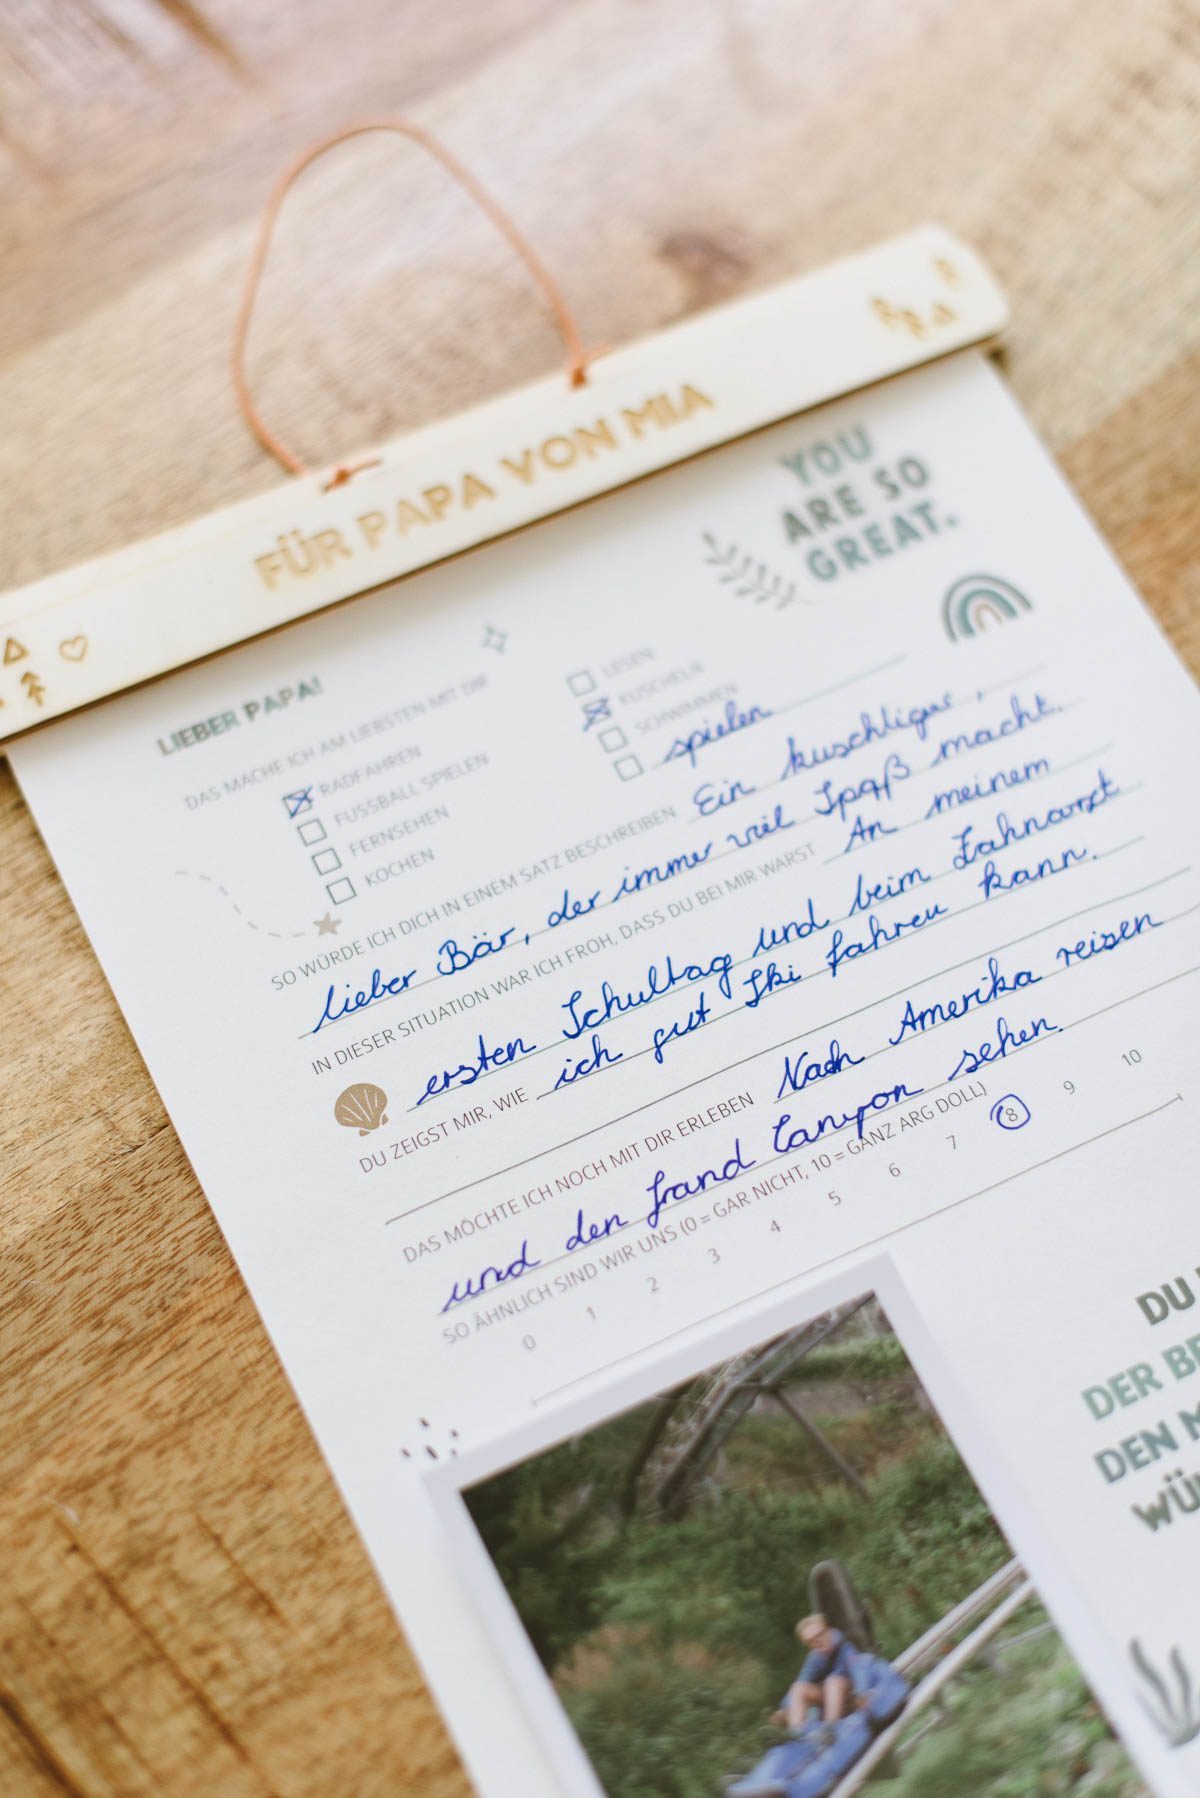 FÜR PAPA VON MIA
YOU
ARE SO
GREAT.
LIEBER PAPA!
DAS MACHE ICH AM LIEBSTEN MIT DIR
RADFAHREN
FUSSBALL SPIELEN
FERNSEHEN
KOCHEN
LESEN
KUSCHELN
SCHWIMMEN
spielen
SO WÜRDE ICH DICH IN EINEM SATZ BESCHREIBEN Ein kuschliger,
lieber Bär, der immer viel Spaß macht.
IN DIESER SITUATION WAR ICH FROH, DASS DU BEI MIR WARST An meinem
ersten Schultag und beim Zahnarzt
DU ZEIGST MIR, WIE ich gut Ski fahren kann.
DAS MÖCHTE ICH NOCH MIT DIR ERLEBEN Nach Amerika reisen
und den Grand Canyon sehen.
SO ÄHNLICH SIND WIR UNS (0 = GAR NICHT, 10 = GANZ ARG DOLL)
0 1 2 3 4 5 6 7 8 9 10
DU
DER BE
DEN M
WÜ